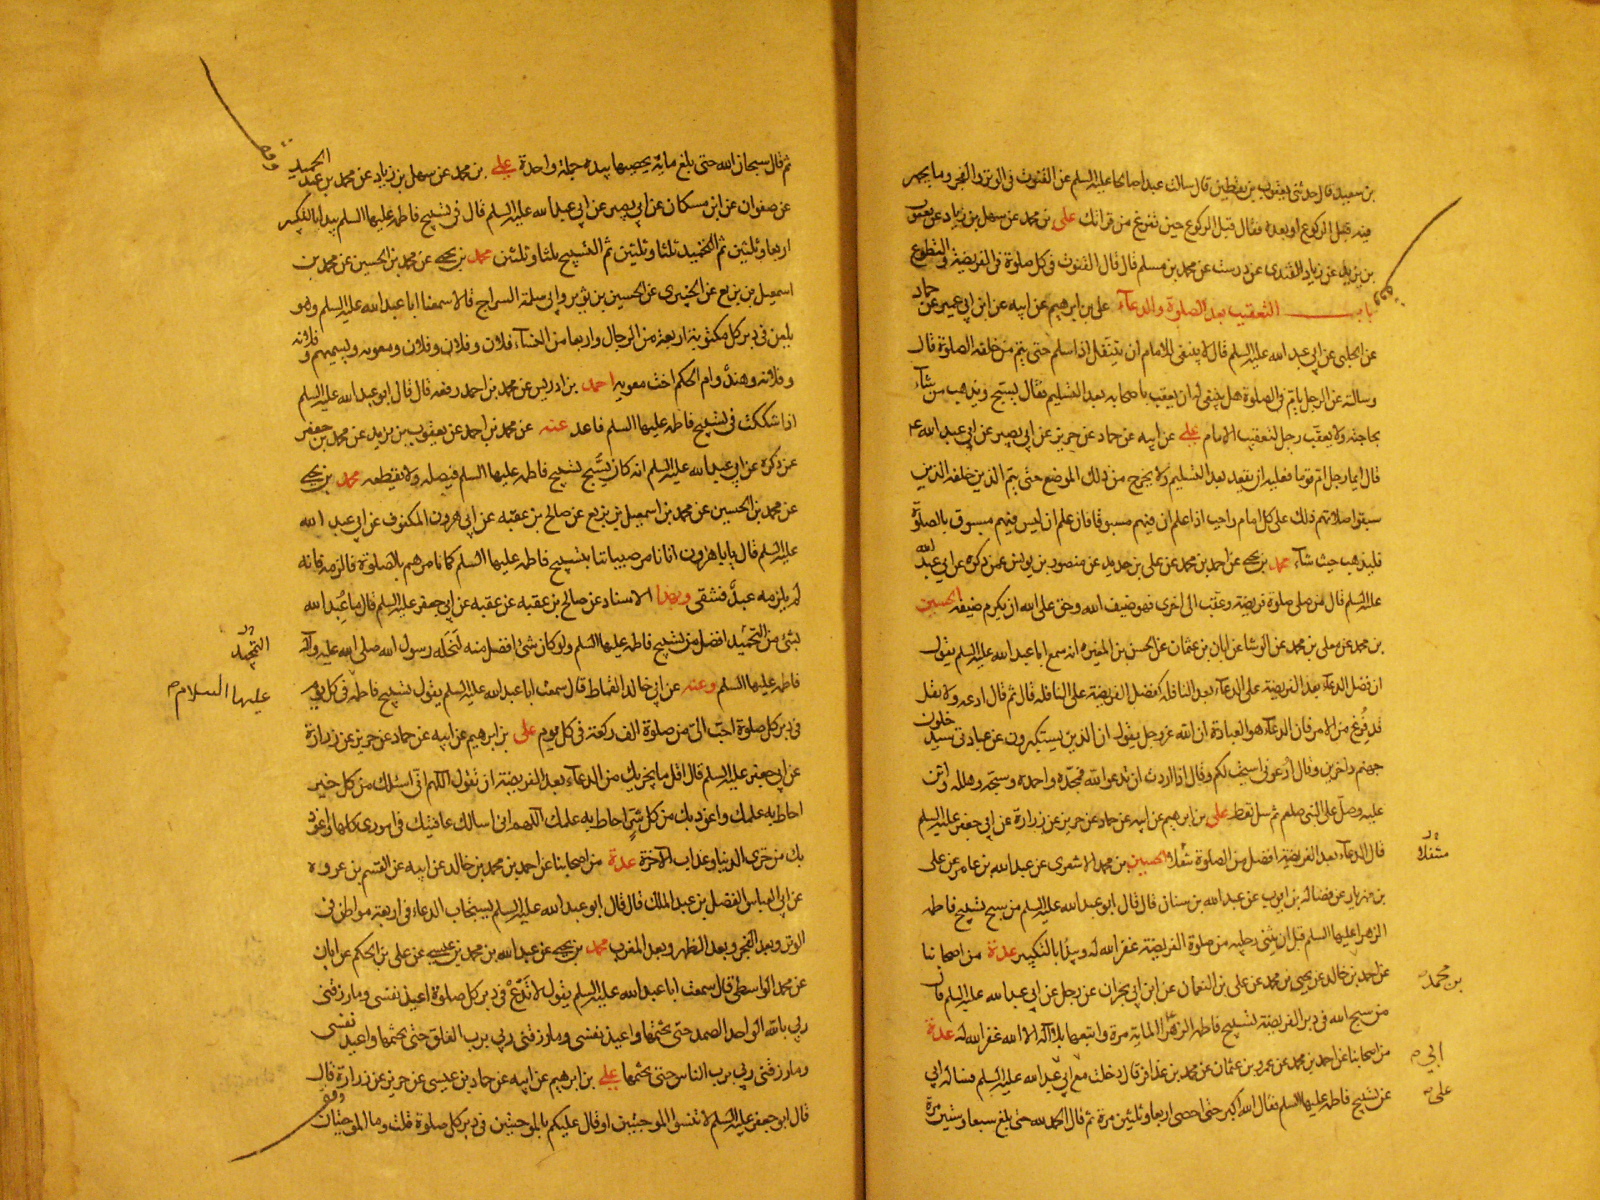 بن سعيد قال حدثني يعقوب بن يقطين قال سالت عبدا صالحا عليه السلم عن القنوت في الوتر والفجر وما يجهر
فيه قبل الركوع او بعده فقال قبل الركوع حين تفرغ من قراتك علي بن محمد عن سهل بن زياد عن يعقوب
بن يزيد عن زياد القندي عن درست عن محمد بن مسلم قال قال القنوت في كل صلوة في الفريضة والتطوع
باب التعقيب بعد الصلوة والدعاء علي بن ابرهيم عن ابيه عن ابن ابي عمير عن حماد
عن الحلبي عن ابي عبد الله عليه السلم قال لا ينبغي للامام ان يتنفل اذا سلم حتى يتم من خلفه الصلوة قال
وسالته عن الرجل يام في الصلوة هل ينبغي له ان يعقب باصحابه بعد التسليم فقال يسبح ويذهب من شاء
بحاجته ولا يعقب رجل لتعقيب الامام علي عن ابيه عن حماد عن حريز عن ابي بصير عن ابي عبد الله ع
قال ايما رجل ام قوما فعليه ان يقعد بعد التسليم ولا يخرج من ذلك الموضع حتى يتم الذين خلفه الذين
سبقوا صلاتهم ذلك على كل امام واجب اذا علم ان فيهم مسبوقا فان علم ان ليس فيهم مسبوق بالصلوة
فليذهب حيث شاء محمد بن يحيى عن احمد بن محمد عن علي بن حديد عن منصور بن يونس عمن ذكره عن ابي عبد الله
عليه السلم قال من صلى صلوة فريضة وعقب الى اخرى فهو ضيف الله وحق على الله ان يكرم ضيفه الحسين
بن محمد عن معلى بن محمد عن الوشا عن ابان بن عثمان عن الحسن بن المغيره انه سمع ابا عبد الله عليه السلم يقول
ان فضل الدعاء بعد الفريضة على الدعاء بعد النافله كفضل الفريضة على النافله قال ثم قال ادعه ولا تقل
قد فرغ من الامر فان الدعاء هو العبادة ان الله عز وجل يقول ان الذين يستكبرون عن عبادتي سيدخلون
جهنم داخرين وقال ادعوني استجب لكم وقال اذا اردت ان تدعو الله فمجده واحمده وسبحه وهلله واثن
عليه وصل على النبي صلعم ثم سل تعط علي بن ابرهيم عن ابيه عن حماد عن حريز عن زرارة عن ابي جعفر عليه السلم
قال الدعاء بعد الفريضة افضل من الصلوة تنفلا الحسين بن محمد الاشعري عن عبد الله بن عامر عن علي
متنفلا
بن مهزيار عن فضاله بن ايوب عن عبد الله بن سنان قال قال ابو عبد الله عليه السلم من سبح تسبيح فاطمه
الزهرا عليها السلم قبل ان يثني رجليه من صلوة الفريضة غفر الله له ويبدا بالتكبير عدة من اصحابنا
عن احمد بن خالد عن يحيى بن محمد عن علي بن النعمان عن ابن ابي نجران عن رجل عن ابي عبد الله عليه السلم قال
بن محمد
من سبح الله في دبر الفريضة تسبيح فاطمه الزهرا الماية مرة واتبعها بلا اله الا الله غفر الله له عدة
من اصحابنا عن احمد بن محمد عن عمرو بن عثمان عن محمد بن عذافر قال دخلت مع ابي عبد الله عليه السلم فساله ابي
ابي
عن تسبيح فاطمه عليها السلم فقال الله اكبر حتى احصى اربعا وثلثين مرة ثم قال الحمد لله حتى بلغ سبعا وستين مرة
على
ثم قال سبحان الله حتى بلغ مائة يحصيها بيده جملة واحدة علي بن محمد عن سهل بن زياد عن محمد بن عبد الحميد
وقف
عن صفوان عن ابن مسكان عن ابي بصير عن ابي عبد الله عليه السلم قال في تسبيح فاطمه عليها السلم يبدا بالتكبير
اربعا وثلثين ثم التحميد ثلثا وثلثين ثم التسبيح ثلثا وثلثين محمد بن يحيى عن محمد بن الحسين عن محمد بن
اسمعيل بن بزيع عن الخيبري عن الحسين بن ثوير وابي سلمة السراج قالا سمعنا ابا عبد الله عليه السلم وهو
يلعن في دبر كل مكتوبة اربعة من الرجال واربعا من النساء فلان وفلان وفلان ومعويه ويسميهم وفلانه
وفلانه وهند وام الحكم اخت معويه احمد بن ادريس عن محمد بن احمد رفعه قال قال ابو عبد الله عليه السلم
اذا شككت في تسبيح فاطمه عليها السلم فاعد عنه عن محمد بن احمد عن يعقوب بن يزيد عن محمد بن جعفر
عن ذكره عن ابي عبد الله عليه السلم انه كان يسبح تسبيح فاطمه عليها السلم فيصله ولا يقطعه محمد بن يحيى
عن محمد بن الحسين عن محمد بن اسمعيل بن بزيع عن صالح بن عقبه عن ابي هرون المكفوف عن ابي عبد الله
عليه السلم قال يا با هرون انا نامر صبياننا بتسبيح فاطمه عليها السلم كما نامرهم بالصلوة فالزمه فانه
لم يلزمه عبد فشقى وبهذا الاسناد عن صالح بن عقبه عن عقبه عن ابي جعفر عليه السلم قال ما عبد الله
بشئ من التحميد افضل من تسبيح فاطمه عليها السلم ولو كان شئ افضل منه لنحله رسول الله صلى الله عليه وآله
التمجيد
فاطمه عليها السلم وعنه عن ابي خالد القماط قال سمعت ابا عبد الله عليه السلم يقول تسبيح فاطمه في كل يوم
عليها السلام
في دبر كل صلوة احب الي من صلوة الف ركعة في كل يوم علي بن ابرهيم عن ابيه عن حماد عن حريز عن زرارة
عن ابي جعفر عليه السلم قال اقل ما يجزيك من الدعاء بعد الفريضة ان تقول اللهم اني اسئلك من كل خير
احاط به علمك واعوذ بك من كل شر احاط به علمك اللهم اني اسالك عافيتك في اموري كلها واعوذ
بك من خزي الدنيا وعذاب الآخرة عدة من اصحابنا عن احمد بن محمد بن خالد عن ابيه عن القسم بن عروه
عن ابي العباس الفضل بن عبد الملك قال قال ابو عبد الله عليه السلم يستجاب الدعاء في اربعة مواطن في
الوتر وبعد الفجر وبعد الظهر وبعد المغرب محمد بن يحيى عن عبد الله بن محمد بن عيسى عن علي بن الحكم عن ابان
عن محمد الواسطي قال سمعت ابا عبد الله عليه السلم يقول لا تدع في دبر كل صلوة اعيذ نفسي وما رزقني
ربي بالله الواحد الصمد حتى تختمها واعيذ نفسي وما رزقني ربي برب الفلق حتى تختمها واعيذ نفسي
وما رزقني ربي برب الناس حتى تختمها علي بن ابرهيم عن ابيه عن حماد بن عيسى عن حريز عن زرارة قال
قال ابو جعفر عليه السلم لا تنسوا الموجبتين او قال عليكم بالموجبتين في دبر كل صلوة قلت وما الموجبتان
وقف